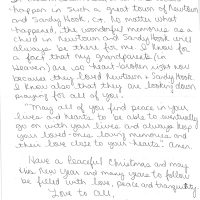 happen in such a great town of Newtown
and Sandy Hook, Ct. No matter what
happened, the wonderful memories as a
child in Newtown and Sandy Hook will
always be there for me. I know for
a fact that my Grandparents (in
Heaven) are so heart-broken right now
because they loved Newtown & Sandy Hook.
I know also that they are looking down
praying for all of you.
"May all of you find peace in your
lives and hearts to be able to eventually
go on with your lives and always keep
your loved ones' loving memories and
their love close to your hearts" Amen.
Have a Peaceful Christmas and may
this New Year and many years to follow
be filled with love, peace and tranquility.
Love to All,